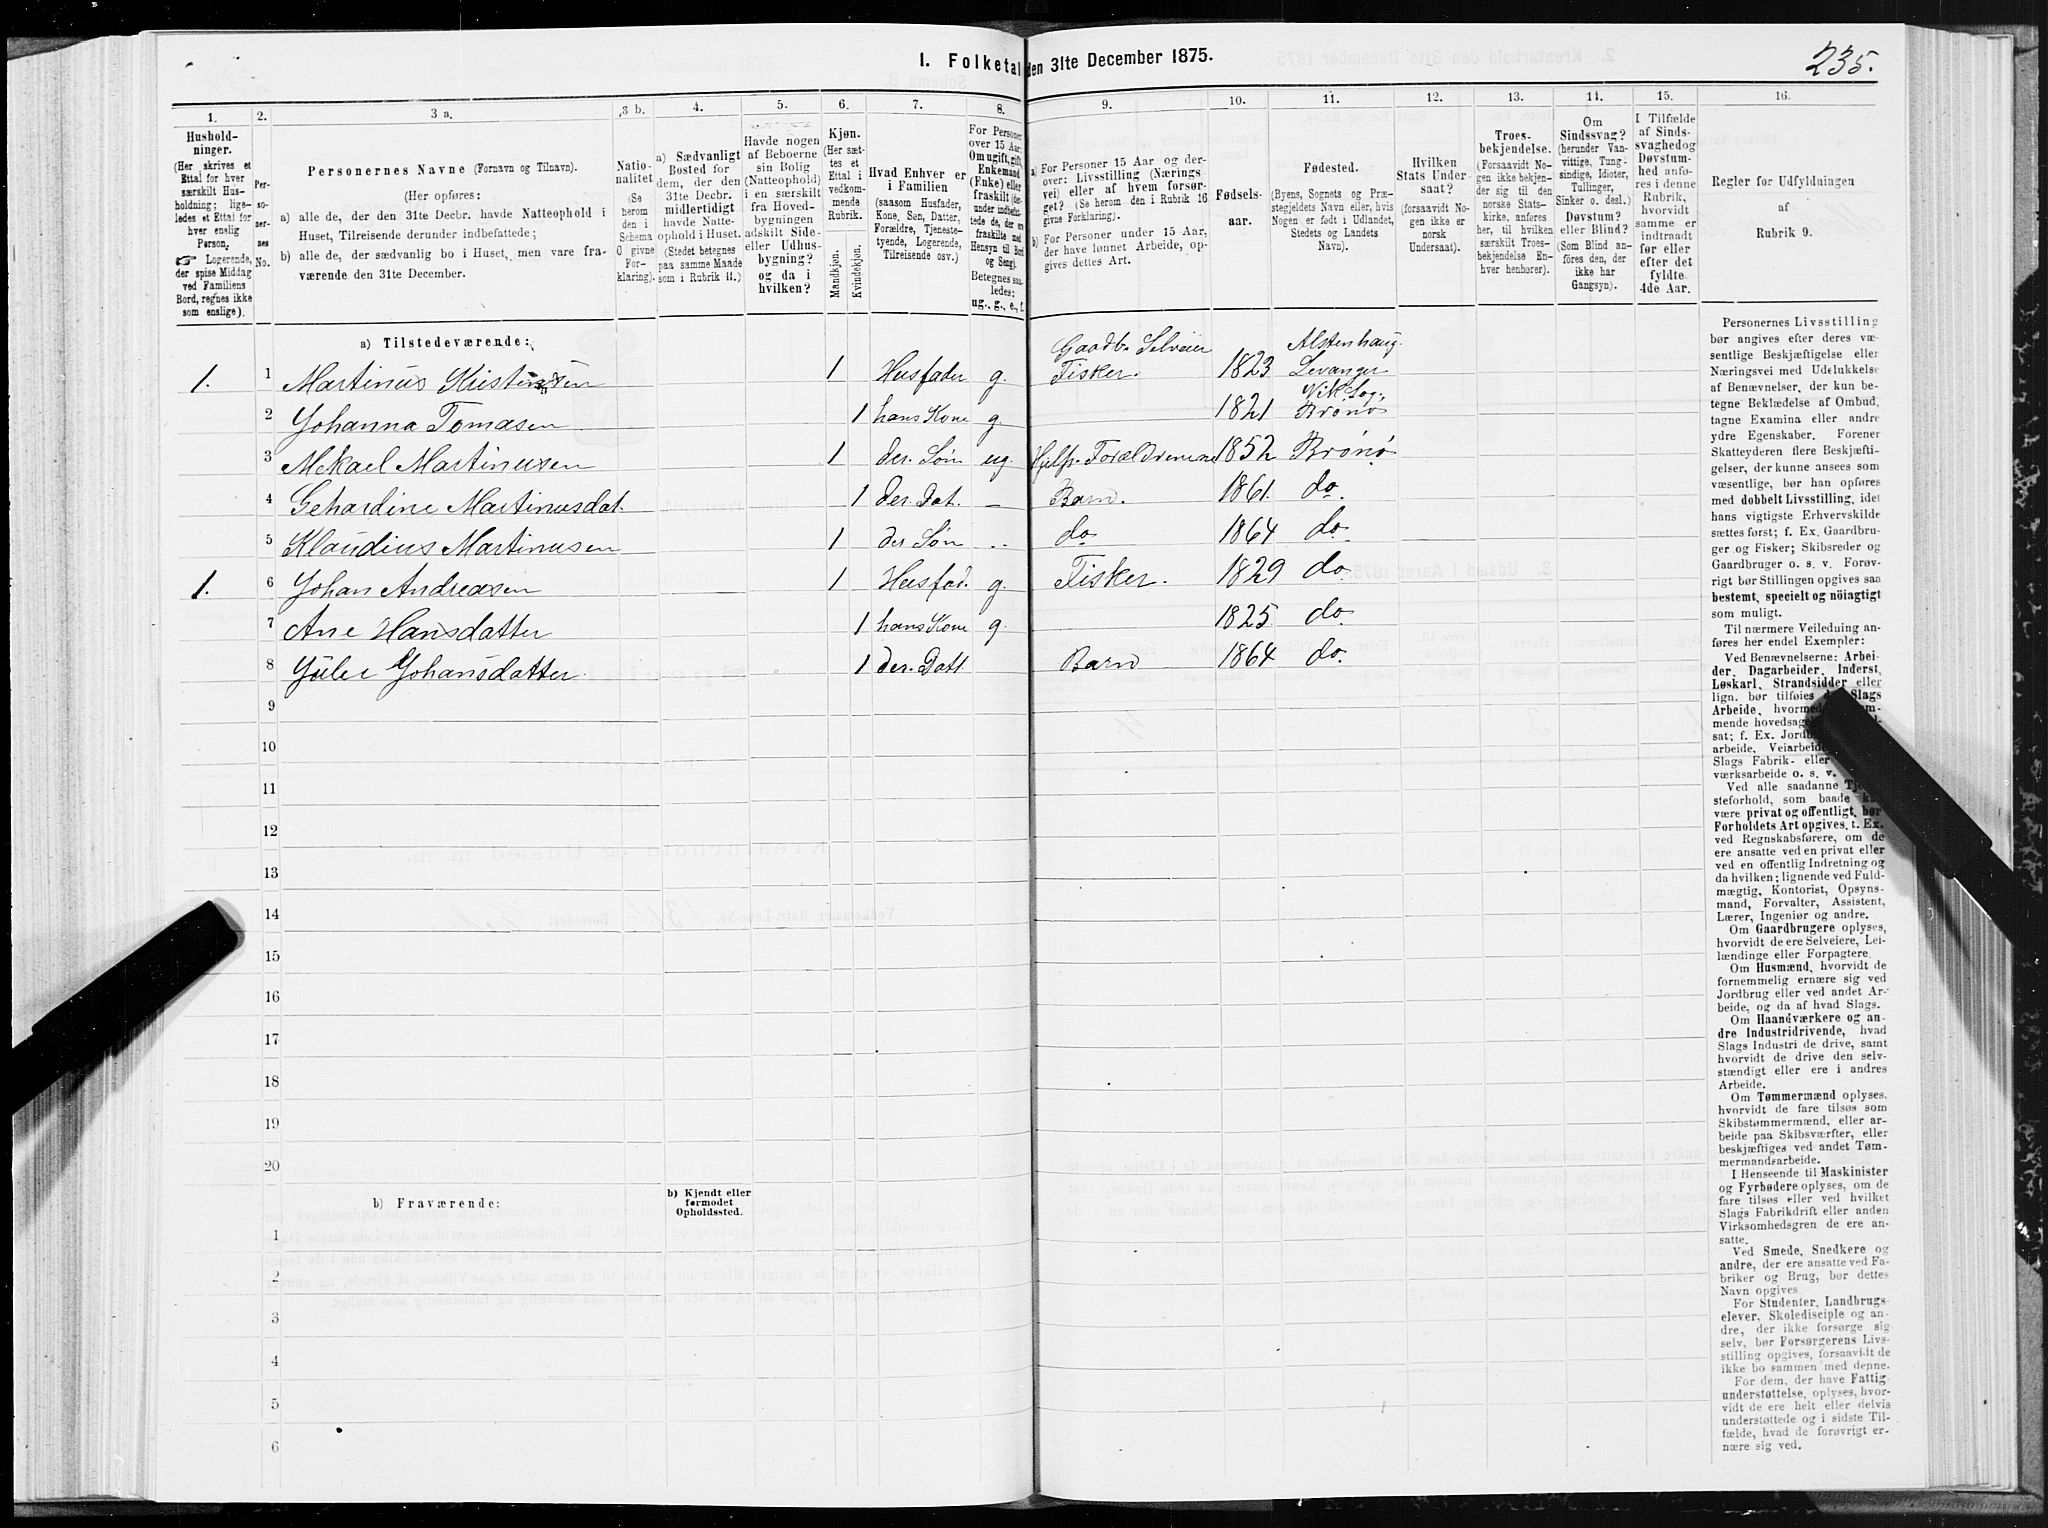 1. Folketal den 31te December 1875.
235.
1.
2.
3 a.
3 b.
4.
5.
6.
7.
8.
9.
10.
11.
12.
13.
14.
15.
16.
Hushold-
ninger.
(Her skrives et
Ettal for hver
særskilt Hus-
holdning; lige-
ledes et Ettal for
hver enslig
Person.
☞ Logerende,
der spise Middag
ved Familiens
Bord, regnes ikke
som enslige).
Per-
so-
ner-
nes
No.
Personernes Navne (Fornavn og Tilnavn).
(Her opføres:
a) alle de, der den 31te Decbr. havde Natteophold i
Huset, Tilreisende derunder indbefattede;
b) alle de, der sædvanlig bo i Huset, men vare fra-
værende den 31te December.
Natio-
nalitet
(Se
herom
den i
Schema
0 givne
For-
klaring).
a) Sædvanligt
Bosted for
dem, der den
31te Decbr.
midlertidigt
havde Natte-
ophold i Huset.
(Stedet betegnes
paa samme Maade
som i Rubrik 11.)
Havde nogen
af Beboerne
sin Bolig
(Natteophold)
i en særskilt
fra Hoved-
bygningen
adskilt Side-
eller Udhus-
bygning?
og da i
hvilken?
Kjøn.
(Her sæt-
tes et
Ettal i
vedkom-
mende
Rubrik.
Mandkjøn.
Kvindekjøn.
Hvad Enhver er
i Familien
(saasom Husfader,
Kone, Søn, Datter,
Forældre, Tjeneste-
tyende, Logerende,
Tilreisende osv.)
For Personer
over 15 Aar:
Om ugift, gift,
Enkemand
(Enke) eller
fraskilt (der-
under indbefat-
tede de, der ere
fraskilte med
Hensyn til Bord
og Seng).
Betegnes saa-
ledes:
ug., g., e., f.
a) For Personer 15 Aar og der-
over: Livsstilling (Nærings
vei) eller af hvem forsør-
get? (Se herom den i Rubrik 16
givne Forklaring).
b) For Personer under 15 Aar,
der have lønnet Arbeide, op-
gives dettes Art.
Fødsels-
aar.
Fødested.
(Byens, Sognets og Præ-
stegjeldets Navn eller, hvis
Nogen er født i Udlandet,
Stedets og Landets
Navn).
Hvilken
Stats Under-
saat?
(forsaavidt No-
gen ikke er
norsk
Undersaat).
Troes-
bekjendelse.
(Forsaavidt No-
gen ikke bekjen-
der sig til den
norske Stats-
kirke, anføres
her, til hvilken
særskilt Troes-
bekjendelse En-
hver henhorer).
Om
Sindssvag?
(herunder Van-
vittige, Tung-
sindige, Idioter,
Tullinger,
Sinker o. desl.)
Døvstum?
eller Blind?
(Som Blind an-
føres den, der
ikke har
Gangsyn).
I Tilfælde
af Sinds-
svaghed og
Døvstum-
hed anfø-
res i denne
Rubrik,
hvorvidt
samme er
indtraadt
før eller
efter det
fyldte
4de Aar.
Regler for Udfyldningen
af
Rubrik 9.
a) Tilstedeværende:
1. 1 Martinus Kristensen 1 Husfader g. Gaadb. Selveier Fisker. 1823 Alstenhaug. Levanger
2 Johanna Tomasen 1 hans Kone g. 1821 Vik. Sog. Brønø
3 Mikael Martinusen 1 der. Søn ug. Hjelpr. Forældrene 1852 Brønø
4 Gehardine Martinusdat. 1 der. Dat. — Barn. 1861. do.
5 Klaudius Martinusen 1 der Søn .. do 1864 do.
1. 6 Johan Andreasen 1 Husfad. g. Fisker. 1829 do.
7 Ane Hansdatter 1 hans Kone g. 1825 do.
8 Julie Johansdatter. 1 der. Datt Barn 1864 do.
9
10
11
12
13
14
15
16
17
18
19
20
b) Fraværende:
b) Kjendt eller
formodet
Opholdssted.
1
2
3
4
5
6
Personernes Livsstilling
bør angives efter deres væ-
sentlige Beskjæftigelse eller
Næringsvei med Udelukkelse
af Benævnelser, der kun be-
tegne Beklædelse af Ombud,
tagne Examina eller andre
ydre Egenskaber. Forener
Skatteyderen flere Beskjæfti-
gelser, der kunne ansees som
væsentlige, bør han opføres
med dobbelt Livsstilling, idet
hans vigtigste Erhvervskilde
sættes først; f. Ex. Gaardbru-
ger og Fisker; Skibsreder og
Gaardbruger o. s. v. Forøv-
rigt bør Stillingen opgives saa
bestemt, specielt og nöiagtigt
som muligt.
Til nærmere Veiledning an-
føres her endel Exempler:
Ved Benævnelserne: Arbei-
der, Dagarbeider, Inderst,
Løskarl, Strandsidder eller
lign. bør tilføies Slags
Arbeide, hvormed
mende hovedsage
sat; f. Ex. Jordb
arbeide, Veiarbeide
Slags Fabrik- eller
værksarbeide o. s. v.
Ved alle saadanne
steforhold, som baade
være privat og offentligt, bør
Forholdets Art opgives, t. Ex.
ved Regnskabsførere, om de
ere ansatte ved en privat eller
ved en offentlig Indretning og
da hvilken; lignende ved Fuld-
mægtig, Kontorist, Opsyns-
mand, Forvalter, Assistent,
Lærer, Ingeniør og andre.
Om Gaardbrugere oplyses,
hvorvidt de ere Selveiere, Lei-
lændinge eller Forpagtere.
Om Husmænd, hvorvidt de
fornemmelig ernære sig ved
Jordbrug eller ved andet Ar-
beide, og da af hvad Slags.
Om Haandværkere og an-
dre Industridrivende, hvad
Slags Industri de drive, samt
hvorvidt de drive den selv-
stændigt eller ere i andres
Arbeide.
Om Tømmermænd oplyses,
hvorvidt de fare tilsøs som
Skibstømmermænd, eller ar-
beide paa Skibsværfter, eller
beskjæftiges ved andet Tøm-
mermandsarbeide.
I Henseende til Maskinister
og Fyrbødere oplyses, om de
fare tilsøs eller ved hvilket
Slags Fabrikdrift eller anden
Virksomhedsgren de ere an-
satte.
Ved Smede, Snedkere og
andre, der ere ansatte ved Fa-
briker og Brug, bør dettes
Navn opgives.
For Studenter, Landbrugs-
elever, Skoledisciple og an-
dre, der ikke forsørge sig
selv, bør Forsørgerens Livs-
stilling opgives, forsaavidt de
ikke bo sammen med denne.
For dem, der have Fattig-
understøttelse, oplyses, hvor-
vidt de ere helt eller delvis
understøttede og i sidste Til-
fælde, hvad de forøvrigt er-
nære sig ved.